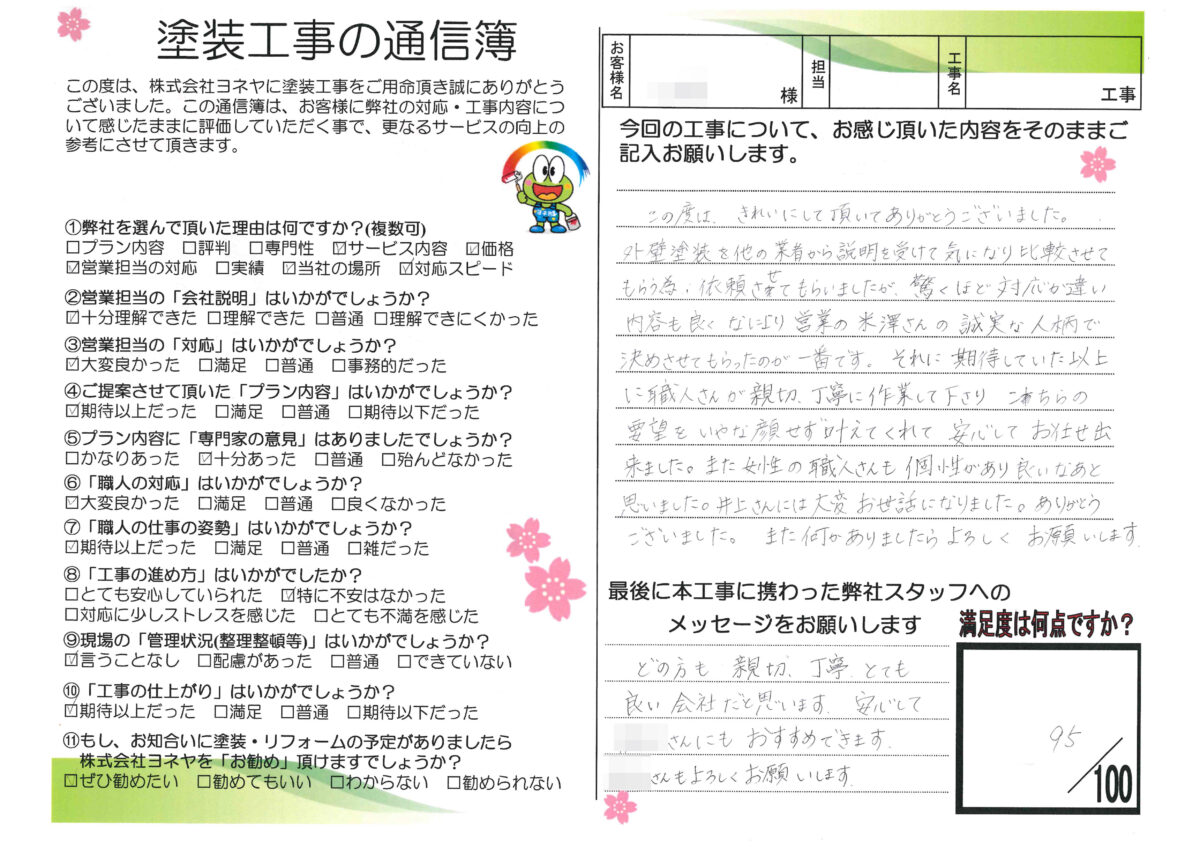 塗装工事の通信簿
この度は、株式会社ヨネヤに塗装工事をご用命頂き誠にありがとう
ございました。この通信簿は、お客様に弊社の対応・工事内容につ
いて感じたままに評価していただく事で、更なるサービスの向上の
参考にさせて頂きます。
①弊社を選んで頂いた理由は何ですか？(複数可)
□プラン内容 □評判 □専門性 ☑サービス内容 ☑価格
☑営業担当の対応 □実績 ☑当社の場所 ☑対応スピード
②営業担当の「会社説明」はいかがでしょうか？
☑十分理解できた □理解できた □普通 □理解できにくかった
③営業担当の「対応」はいかがでしょうか？
☑大変良かった □満足 □普通 □事務的だった
④ご提案させて頂いた「プラン内容」はいかがでしょうか？
☑期待以上だった □満足 □普通 □期待以下だった
⑤プラン内容に「専門家の意見」はありましたでしょうか？
□かなりあった ☑十分あった □普通 □殆んどなかった
⑥「職人の対応」はいかがでしょうか？
☑大変良かった □満足 □普通 □良くなかった
⑦「職人の仕事の姿勢」はいかがでしょうか？
☑期待以上だった □満足 □普通 □雑だった
⑧「工事の進め方」はいかがでしたか？
□とても安心していられた ☑特に不安はなかった
□対応に少しストレスを感じた □とても不満を感じた
⑨現場の「管理状況(整理整頓等)」はいかがでしょうか？
☑言うことなし □配慮があった □普通 □できていない
⑩「工事の仕上がり」はいかがでしょうか？
☑期待以上だった □満足 □普通 □期待以下だった
⑪もし、お知合いに塗装・リフォームの予定がありましたら
株式会社ヨネヤを「お勧め」頂けますでしょうか？
□ぜひ勧めたい □勧めてもいい □わからない □勧められない
お客様名 様 担当 工事名 工事
今回の工事について、お感じ頂いた内容をそのままご
記入お願いします。
この度は、きれいにして頂いてありがとうございました。
外壁塗装を他の業者から説明を受けて気になり比較させて
もらう為、依頼させてもらいましたが、驚くほど対応が違い
内容も良く なにより営業の米澤さんの誠実な人柄で
決めさせてもらったのが一番です。それに期待していた以上
に職人さんが親切、丁寧に作業して下さり こちらの
要望をいやな顔せず叶えてくれて 安心してお任せ出
来ました。また女性の職人さんも個性があり良いなあと
思いました。井上さんには大変お世話になりました。ありがとう
ございました。 また何かありましたらよろしくお願いします。
最後に本工事に携わった弊社スタッフへの
メッセージをお願いします
どの方も 親切、丁寧 とても
良い会社だと思います。 安心して
さんにもおすすめできます。
さんもよろしくお願いします。
満足度は何点ですか？
95/100